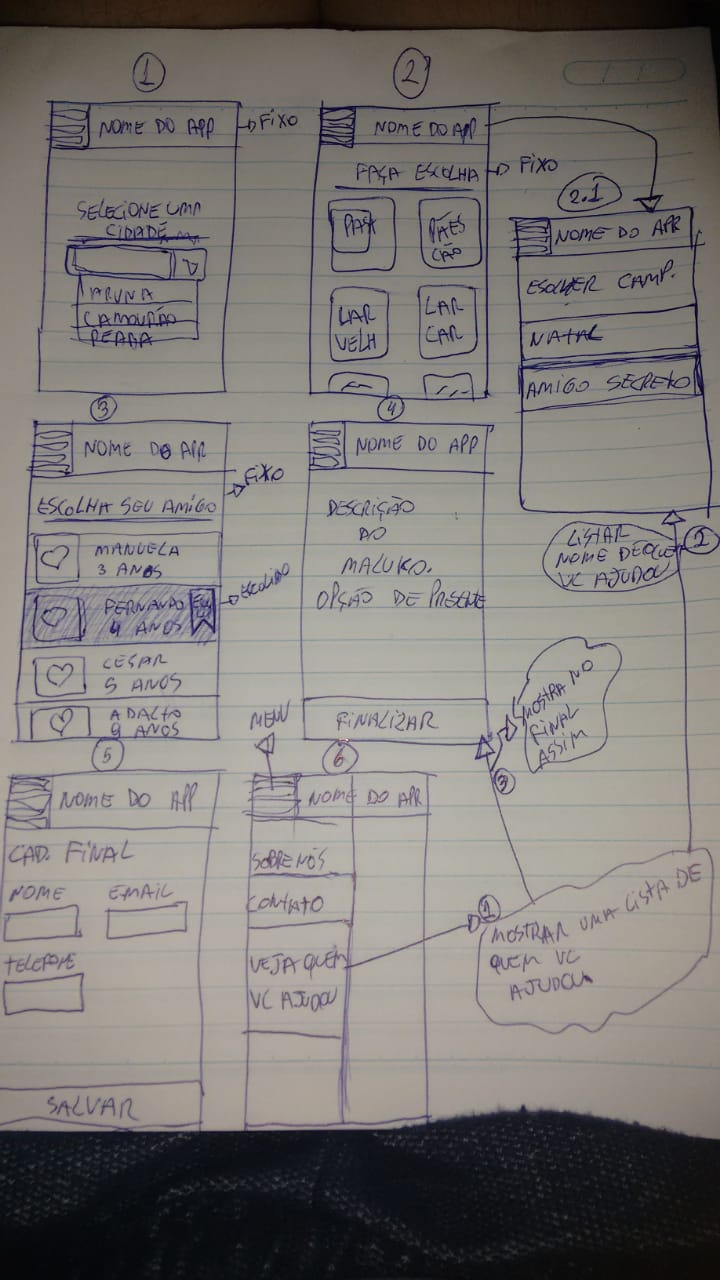 1
NOME DO APP
FIXO
SELECIONE UMA
CIDADE
CAMOURÃO
PEABA
2
NOME DO APP
FAÇA ESCOLHA
FIXO
PAIS
CÃO
LAR
VELH
LAR
CAR
2.1
NOME DO APP
ESCOLHER CAMP.
NATAL
AMIGO SECRETO
LISTAR
NOME DE QUEM
VC AJUDOU
2
3
NOME DO APP
FIXO
ESCOLHA SEU AMIGO
MANUELA
3 ANOS
FERNANDO
4 ANOS
ESCOLIDO
CESAR
5 ANOS
ADALTO
9 ANOS
4
NOME DO APP
DESCRIÇÃO
DO
MALUKO.
OPÇÃO DE PRESENTE
FINALIZAR
MOSTRA NO
FINAL
ASSIM
3
5
NOME DO APP
CAD. FINAL
NOME
EMAIL
TELEFONE
SALVAR
MENU
6
NOME DO APP
SOBRE NÓS
CONTATO
VEJA QUEM
VC AJUDOU
1
MOSTRAR UMA LISTA DE
QUEM VC
AJUDOU